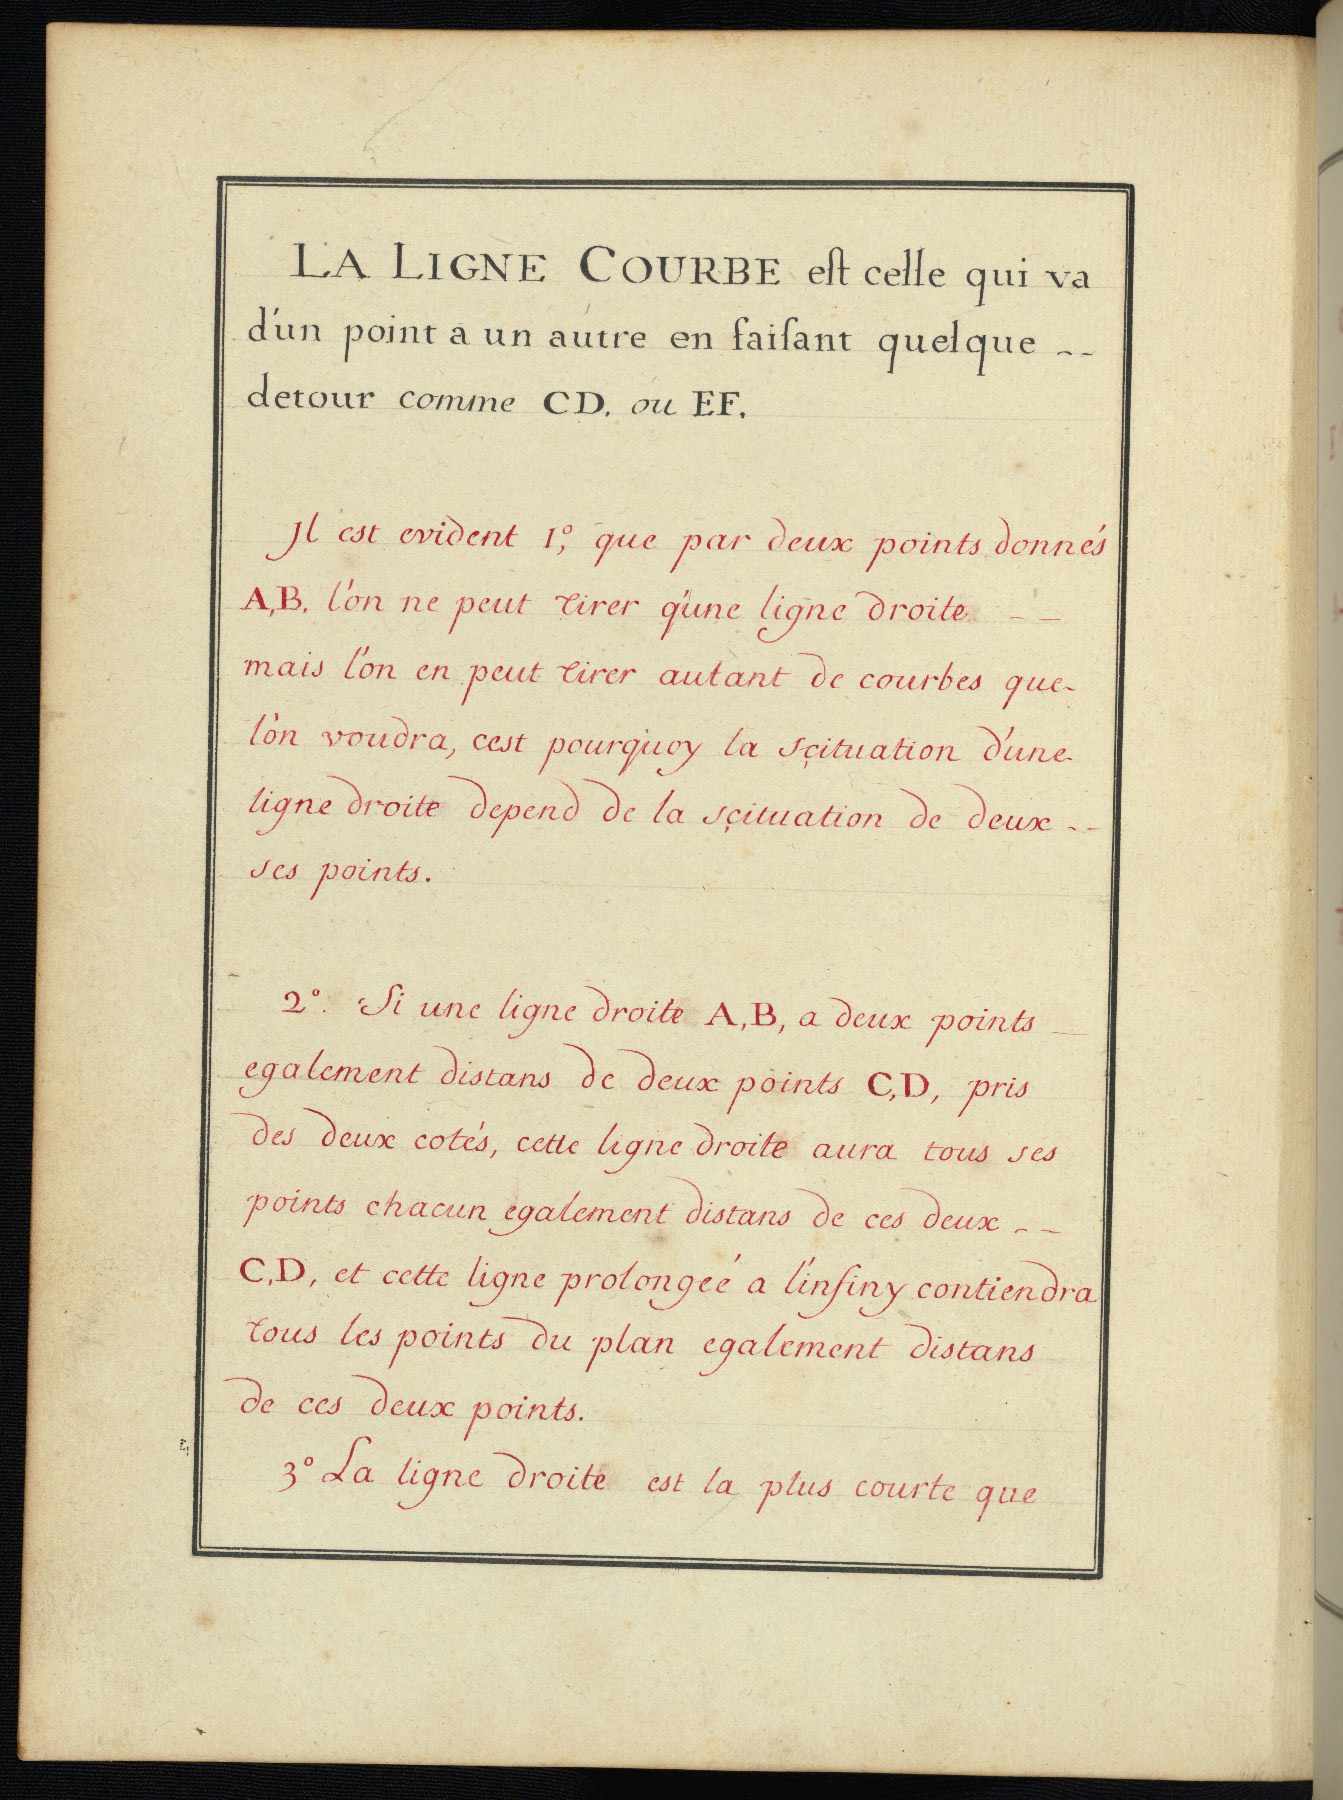 LA LIGNE COURBE eſt celle qui va
d'un point a un autre en faiſant quelque --
detour comme CD. ou EF.
Jl est evident 1.º, que par deux points donnés
A,B. l'on ne peut tirer q'une ligne droite - -
mais l'on en peut tirer autant de courbes que-
l'on voudra, cest pourquoy la sçituation d'une-
ligne droite depend de la sçituation de deux --
ses points.
2º. Si une ligne droite A,B, a deux points —
egalement distans de deux points C,D, pris
des deux cotés, cette ligne droite aura tous ses
points chacun egalement distans de ces deux --
C,D, et cette ligne prolongeé a l'infiny contiendra
tous les points du plan egalement distans
de ces deux points.
3º La ligne droite est la plus courte que